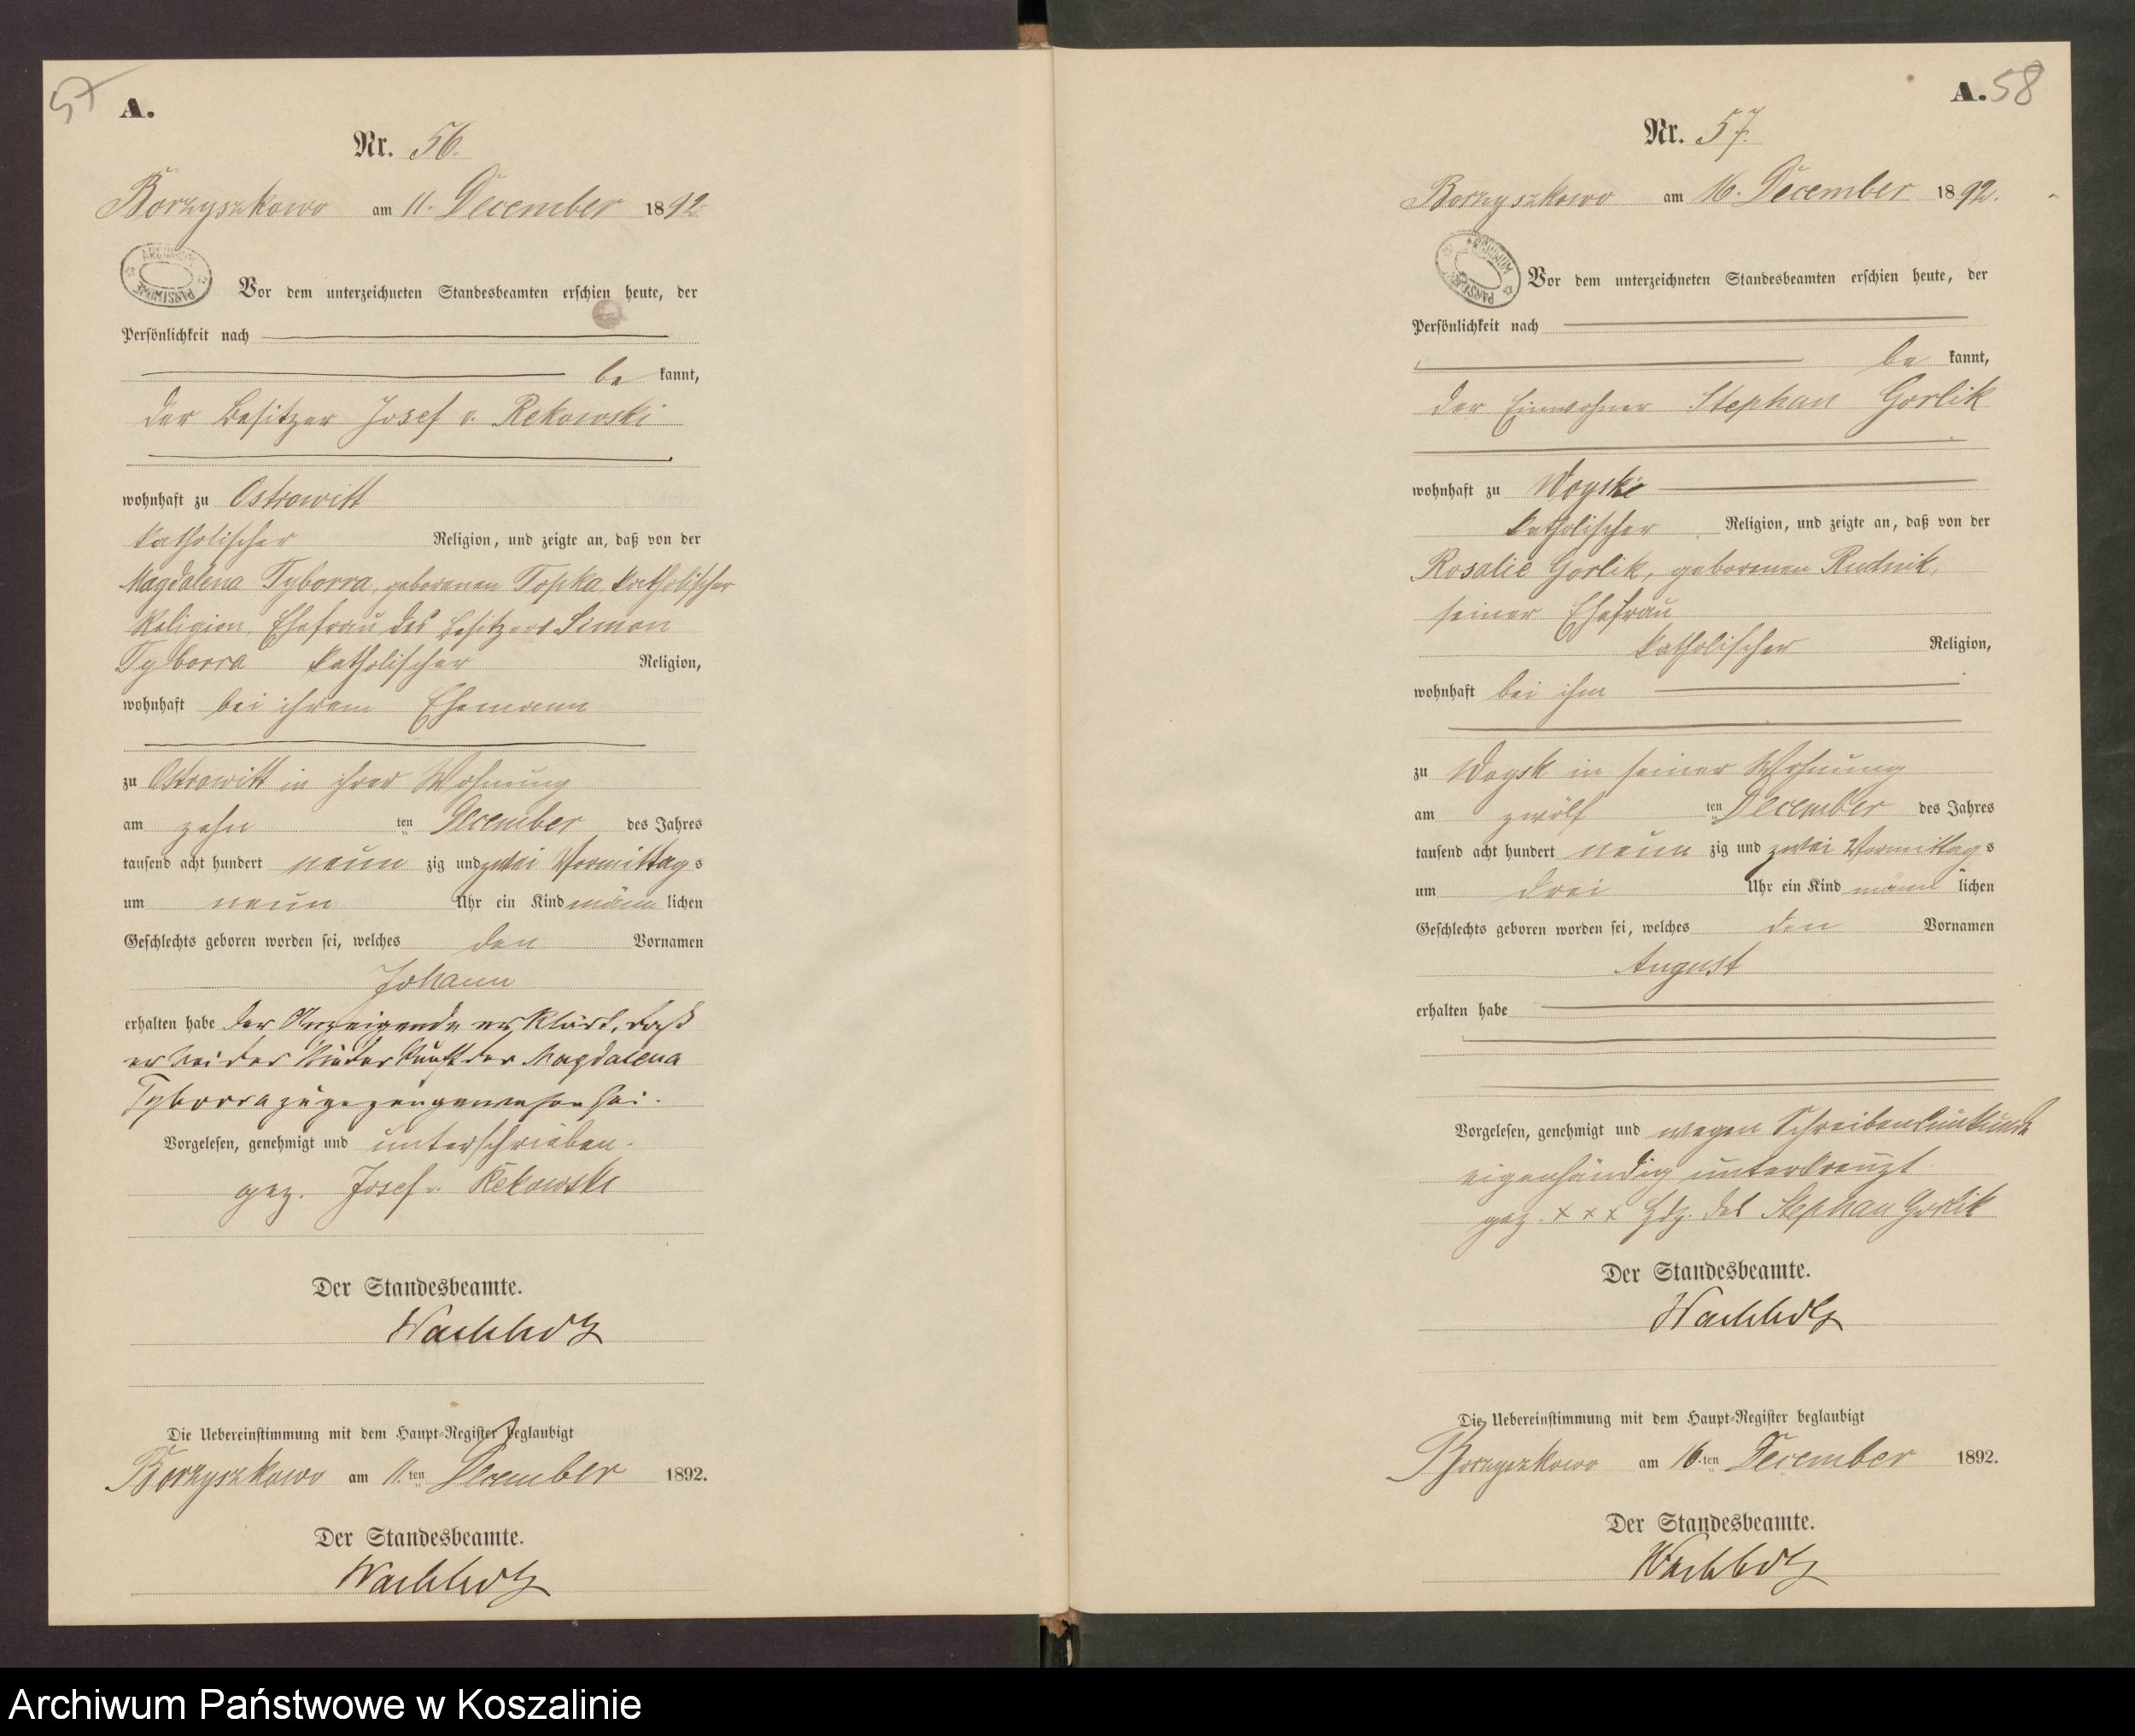 57
A.
Nr. 56.
Borzyszkowo am 11. December 1892.
ARCHIWUM PAŃSTWOWE
Vor dem unterzeichneten Standesbeamten erschien heute, der
Persönlichkeit nach
be kannt,
der Besitzer Josef v. Rekowski
wohnhaft zu Ostrowitt
katholischer Religion, und zeigte an, daß von der
Magdalena Tyborra, geborenen Topka, katholischer
Religion, Ehefrau des Besitzers Simon
Tyborra katholischer Religion,
wohnhaft bei ihrem Ehemann
zu Ostrowitt in ihrer Wohnung
am zehn ten December des Jahres
tausend acht hundert neun zig und zwei Vormittag s
um neun Uhr ein Kind männ lichen
Geschlechts geboren worden sei, welches den Vornamen
Johann
erhalten habe der Anzeigende erklärt, daß
er bei der Niederkunft der Magdalena
Tyborra zugegen gewesen sei.
Vorgelesen, genehmigt und unterschrieben.
gez. Josef v. Rekowski
Der Standesbeamte.
Wachholz
Die Uebereinstimmung mit dem Haupt-Register beglaubigt
Borzyszkowo am 11. ten December 1892.
Der Standesbeamte.
Wachholz
A. 58
Nr. 57.
Borzyszkowo am 16. December 1892.
ARCHIWUM PAŃSTWOWE
Vor dem unterzeichneten Standesbeamten erschien heute, der
Persönlichkeit nach
be kannt,
der Einwohner Stephan Gorlik
wohnhaft zu Woysk
katholischer Religion, und zeigte an, daß von der
Rosalie Gorlik, geborenen Rudnik,
seiner Ehefrau
katholischer Religion,
wohnhaft bei ihm
zu Woysk in seiner Wohnung
am zwölf ten December des Jahres
tausend acht hundert neun zig und zwei Vormittag s
um drei Uhr ein Kind männ lichen
Geschlechts geboren worden sei, welches den Vornamen
August
erhalten habe
Vorgelesen, genehmigt und wegen Schreibensunkunde
eigenhändig unterkreuzt
gez. x x x Hdz. des Stephan Gorlik
Der Standesbeamte.
Wachholz
Die Uebereinstimmung mit dem Haupt-Register beglaubigt
Borzyszkowo am 16. ten December 1892.
Der Standesbeamte.
Wachholz
Archiwum Państwowe w Koszalinie